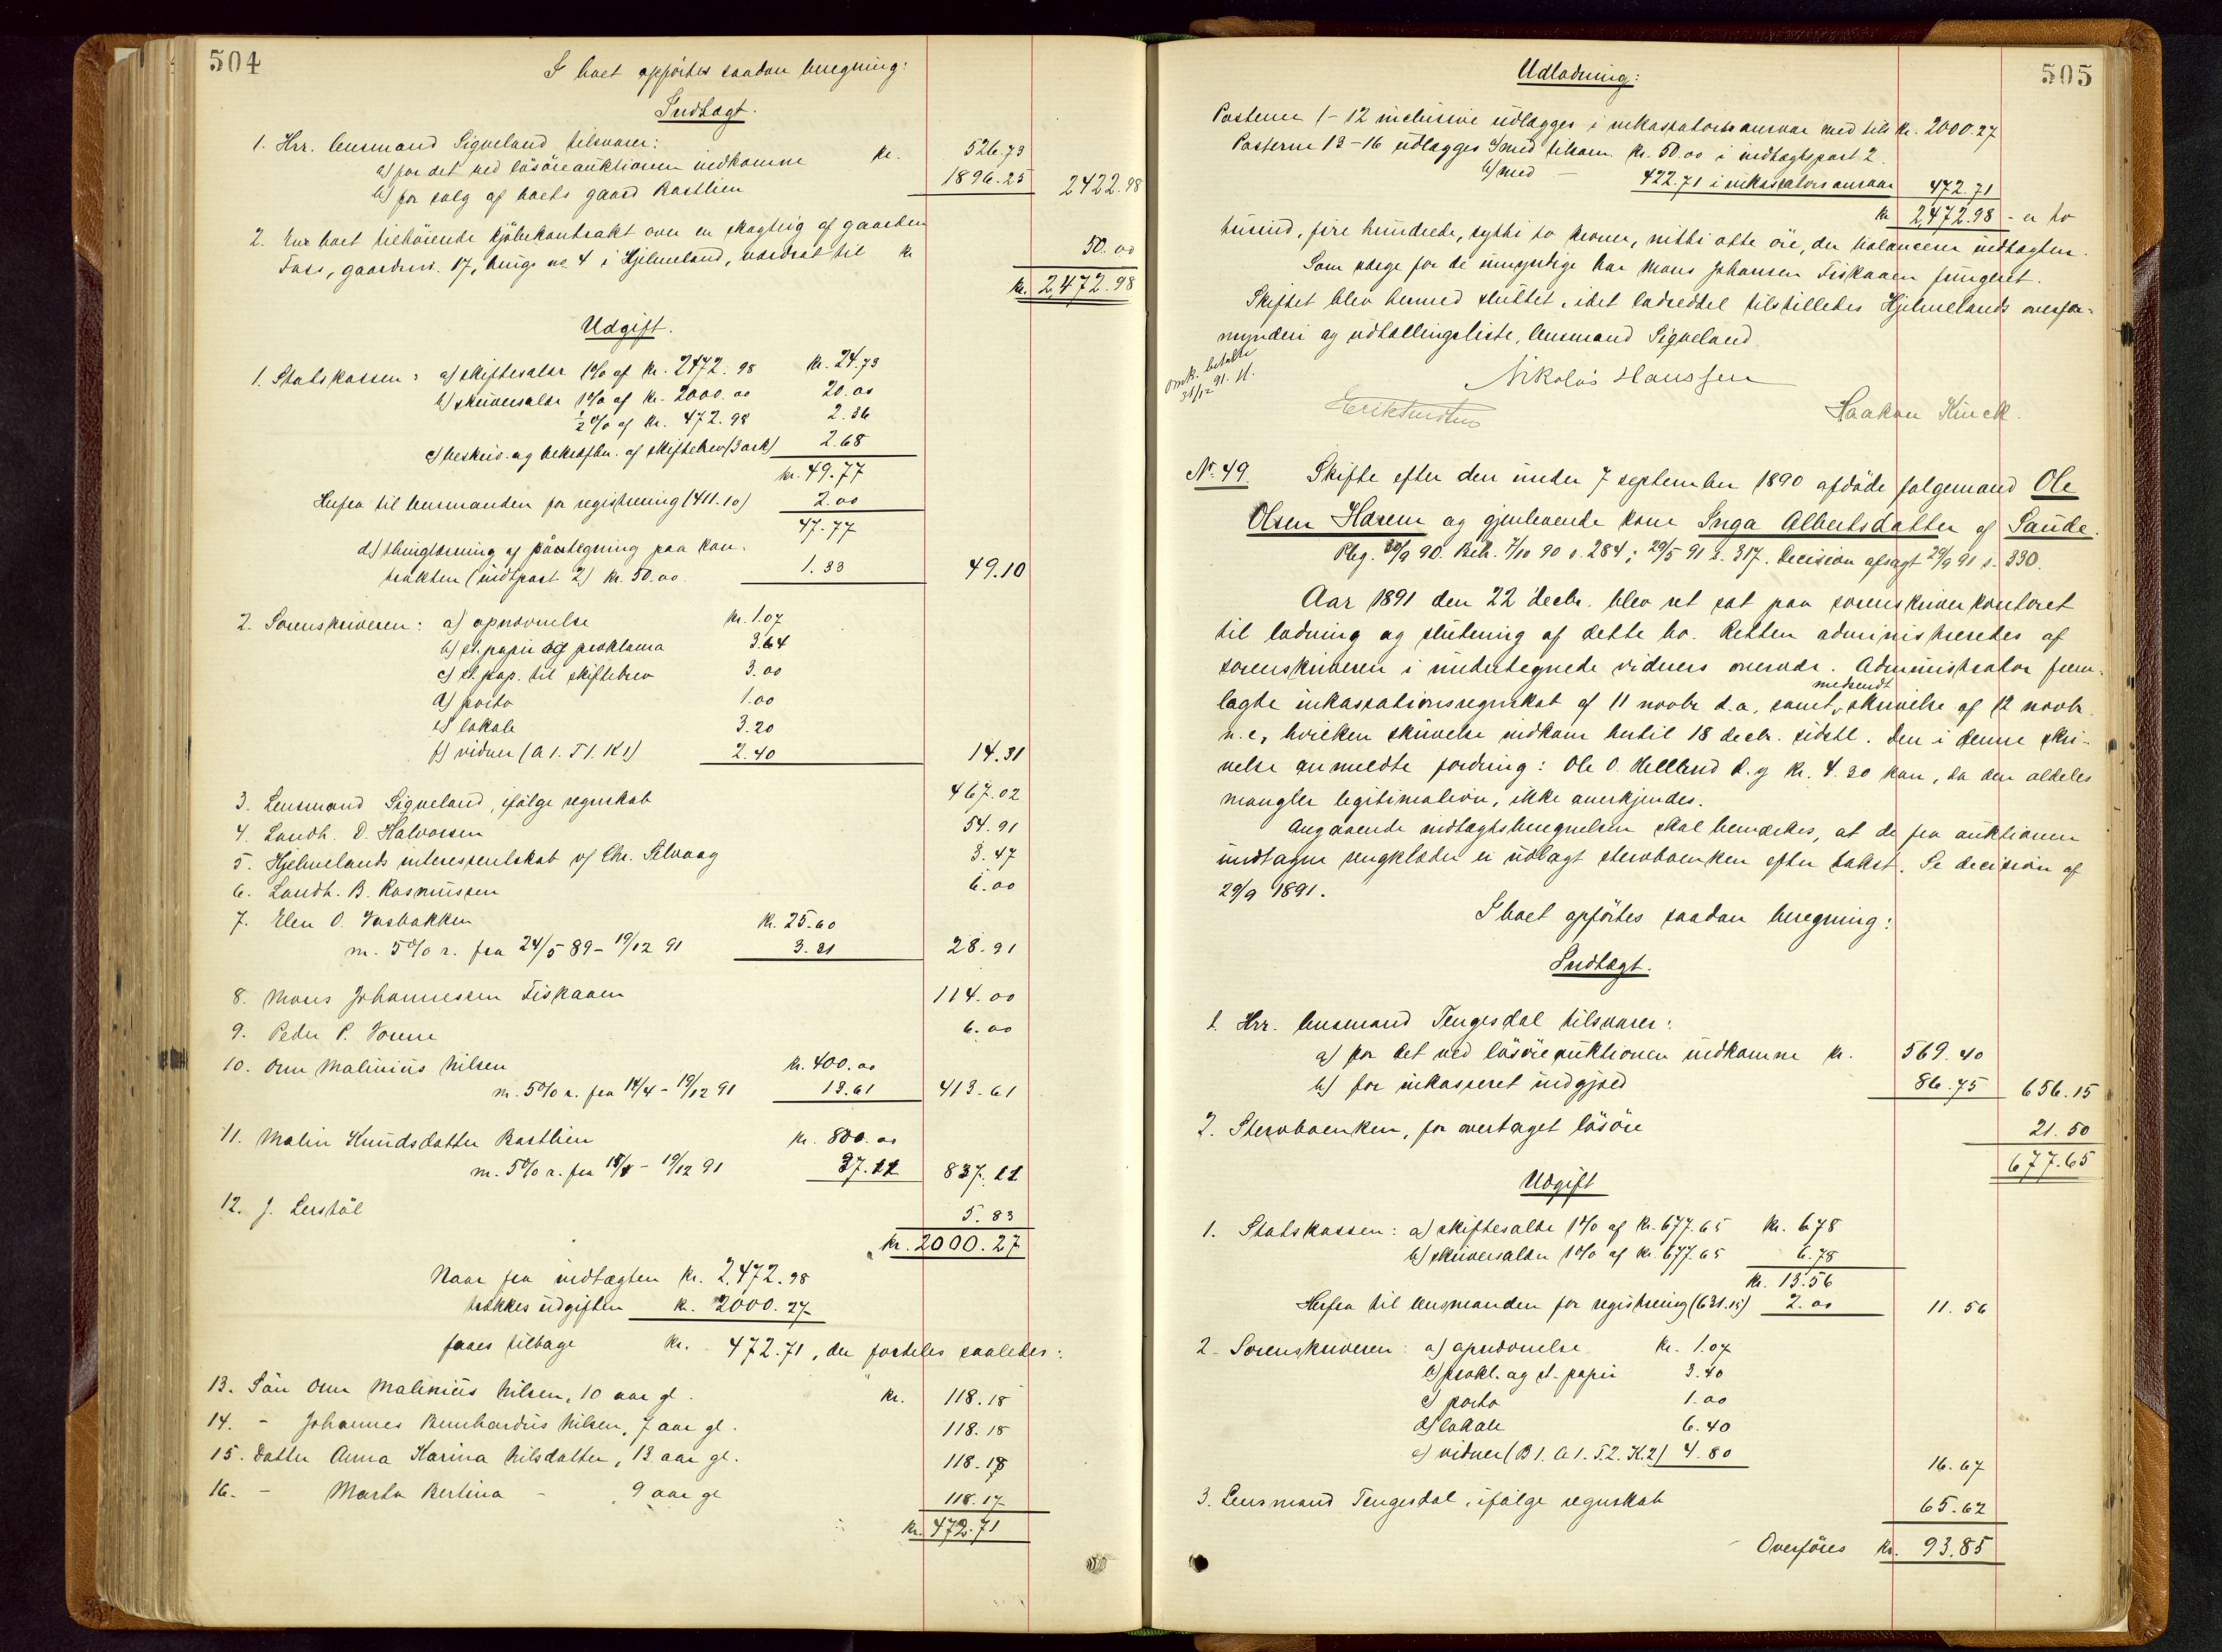 504
I boet opførtes saadan beregning:
Indtægt.
1. Hrr. lensmand Sigveland tilsvarer:
a) for det ved løsøreauktionen indkomne kr. 526.73
b) for salg af boets gaard Bastlien 1896.25 2422.98
2. En boet tilhørende kjøbekontrakt over en skogteig af gaarden
Foss, gaardsno. 17, brugs no. 4 i Hjelmeland, værdsat til kr 50.00
kr. 2,472.98
Udgift.
1. Statskassen: a) skiftesalær 1% af kr. 2472.98 kr. 24.73
b) skriversalær 1% af kr. 2000.00 20.00
½% af kr. 472.98 2.36
c) beskriv. og bekræftn. af skiftebrev (3 ark) 2.68
kr. 49.77
Herfra til lensmanden for registrering (411.10) 2.00
47.77
d) thinglæsning af paategning paa kon-
trakten (indtpost 2) kr. 50.00. 1.33 49.10
2. Sorenskriveren: a) opnævnelse kr. 1.07
b) st. papir og proklama 3.64
c) st. pap. til skiftebrev 3.00
d) porto 1.00
e) lokale 3.20
f) vidner (A 1. T 1. K 1) 2.40 14.31
3. Lensmand Sigveland, ifølge regnskab 467.02
4. Landh. D. Halvorsen 54.91
5. Hjelmelands interessentskab v/ Chr. Selvaag 3.47
6. Landh. B. Rasmussen 6.00
7. Elen O. Vasbakken kr. 25.60
m. 5% r. fra 24/5 89 - 19/12 91 3.31 28.91
8. Mons Johannessen Fiskaaen 114.00
9. Peder P. Vorme 6.00
10. Orm Malinius Nilsen kr. 400.00
m. 5% r. fra 14/4 - 19/12 91 13.61 413.61
11. Malin Knudsdatter Bastlien kr. 800.00
m. 5% r. fra 18/ - 19/12 91 37.22 837.22
12. J. Lerstøl 5.83
kr. 2000.27
Naar fra indtægten kr. 2,472.98
trækkes udgiften k. 2000.27
faaes tilbage kr. 472.71, der fordeles saaledes:
13. Søn Orm Malinius Nilsen, 10 aar gl. kr. 118.18
14. - Johannes Bernhardus Nilsen, 7 aar gl. 118.18
15. Datter Anna Karina Nilsdatter, 13 aar gl. 118.18
16. - Marta Bertina - , 9 aar gl 118.17
kr. 472.71
505
Udlodning:
Posterne 1-12 inclusive udlægges i inkassators ansvar med tils kr. 2000.27
Posterne 13-16 udlægges a) med tilsam. kr. 50.00 i indtægtspost 2.
b) med - 422.71 i inkassators ansvar 472.71
kr 2,472.98 - er to
tusind, fire hundrede, sytti to kroner, nitti otte øre, der balancerer indtægten.
Som værge for de umyndige har Mons Johansen Fiskaaen fungeret.
Skiftet blev hermed sluttet, idet lodseddel tilstilledes Hjelmelands overfor-
mynderi og udtællingsliste, lensmand Sigveland.
Omk. betalte
31/12 91. H.
Nikolai Hanssen
Haakon Kinck.
Nr. 49. Skifte efter den under 7 september 1890 afdøde folgemand Ole
Olsen Hværem og gjenlevende kone Inga Albertsdatter af Saude.
Reg. 30/9 90. Beh. 7/10 90 s. 284; 29/5 91 s. 317. Decision afsagt 29/9 91 s. 330.
Aar 1891 den 22 decbr. blev ret sat paa sorenskriverkontoret
til lodning og slutning af dette bo. Retten administreredes af
sorenskriveren i undertegnede vidners overvær. Administrator frem-
lagde inkassationsregnskab af 11 novbr d.a. samt medsendt skrivelse af 12 novbr.
n.e., hvilken skrivelse indkom hertil 18 decbr. sidstl. Den i denne skri-
velse anmeldte fordring: Ole O. Helland d.y kr. 4.20 kan, da den aldeles
mangler legitimation, ikke anerkjendes.
Angaaende indtægtsberegnelsen skal bemærkes, at de fra auktionen
undtagne sengklæder er udlagt stervboenken efter takst. Se decision af
29/9 1891.
I boet opførtes saadan beregning:
Indtægt.
1. Hrr. lensmand Tengesdal tilsvarer:
a) for det ved løsøreauktionen indkomne kr. 569.40
b) for inkasseret indgjæld 86.75 656.15
2. Stervboenken, for overtaget løsøre 21.50
677.65
Udgift
1. Statskassen: a) skiftesalær 1% af kr. 677.65 kr. 6.78
b) skriversalær 1% af kr. 677.65 6.78
kr. 13.56
Herfra til lensmanden for registrering (631.15) 2.00 11.56
2. Sorenskriveren: a) opnævnelse kr. 1.07
b) prokl. og st. papir 3.40
c) porto 1.00
d) lokale 6.40
e) vidner (B 1. A 1. T. 2. K. 2) 4.80 16.67
3. Lensmand Tengesdal, ifølge regnskab 65.62
Overføres kr. 93.85